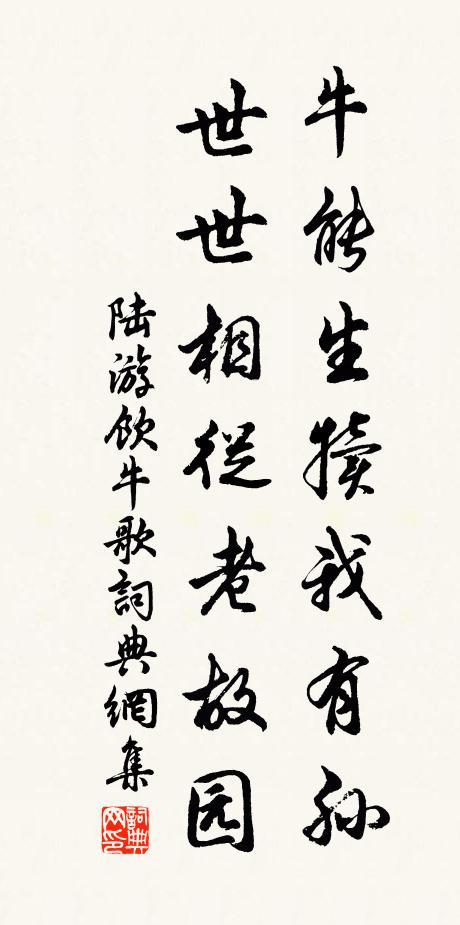 牛能生犊我有孙
世世相从老故园
陆游饮牛歌詞典網集
詞典網印